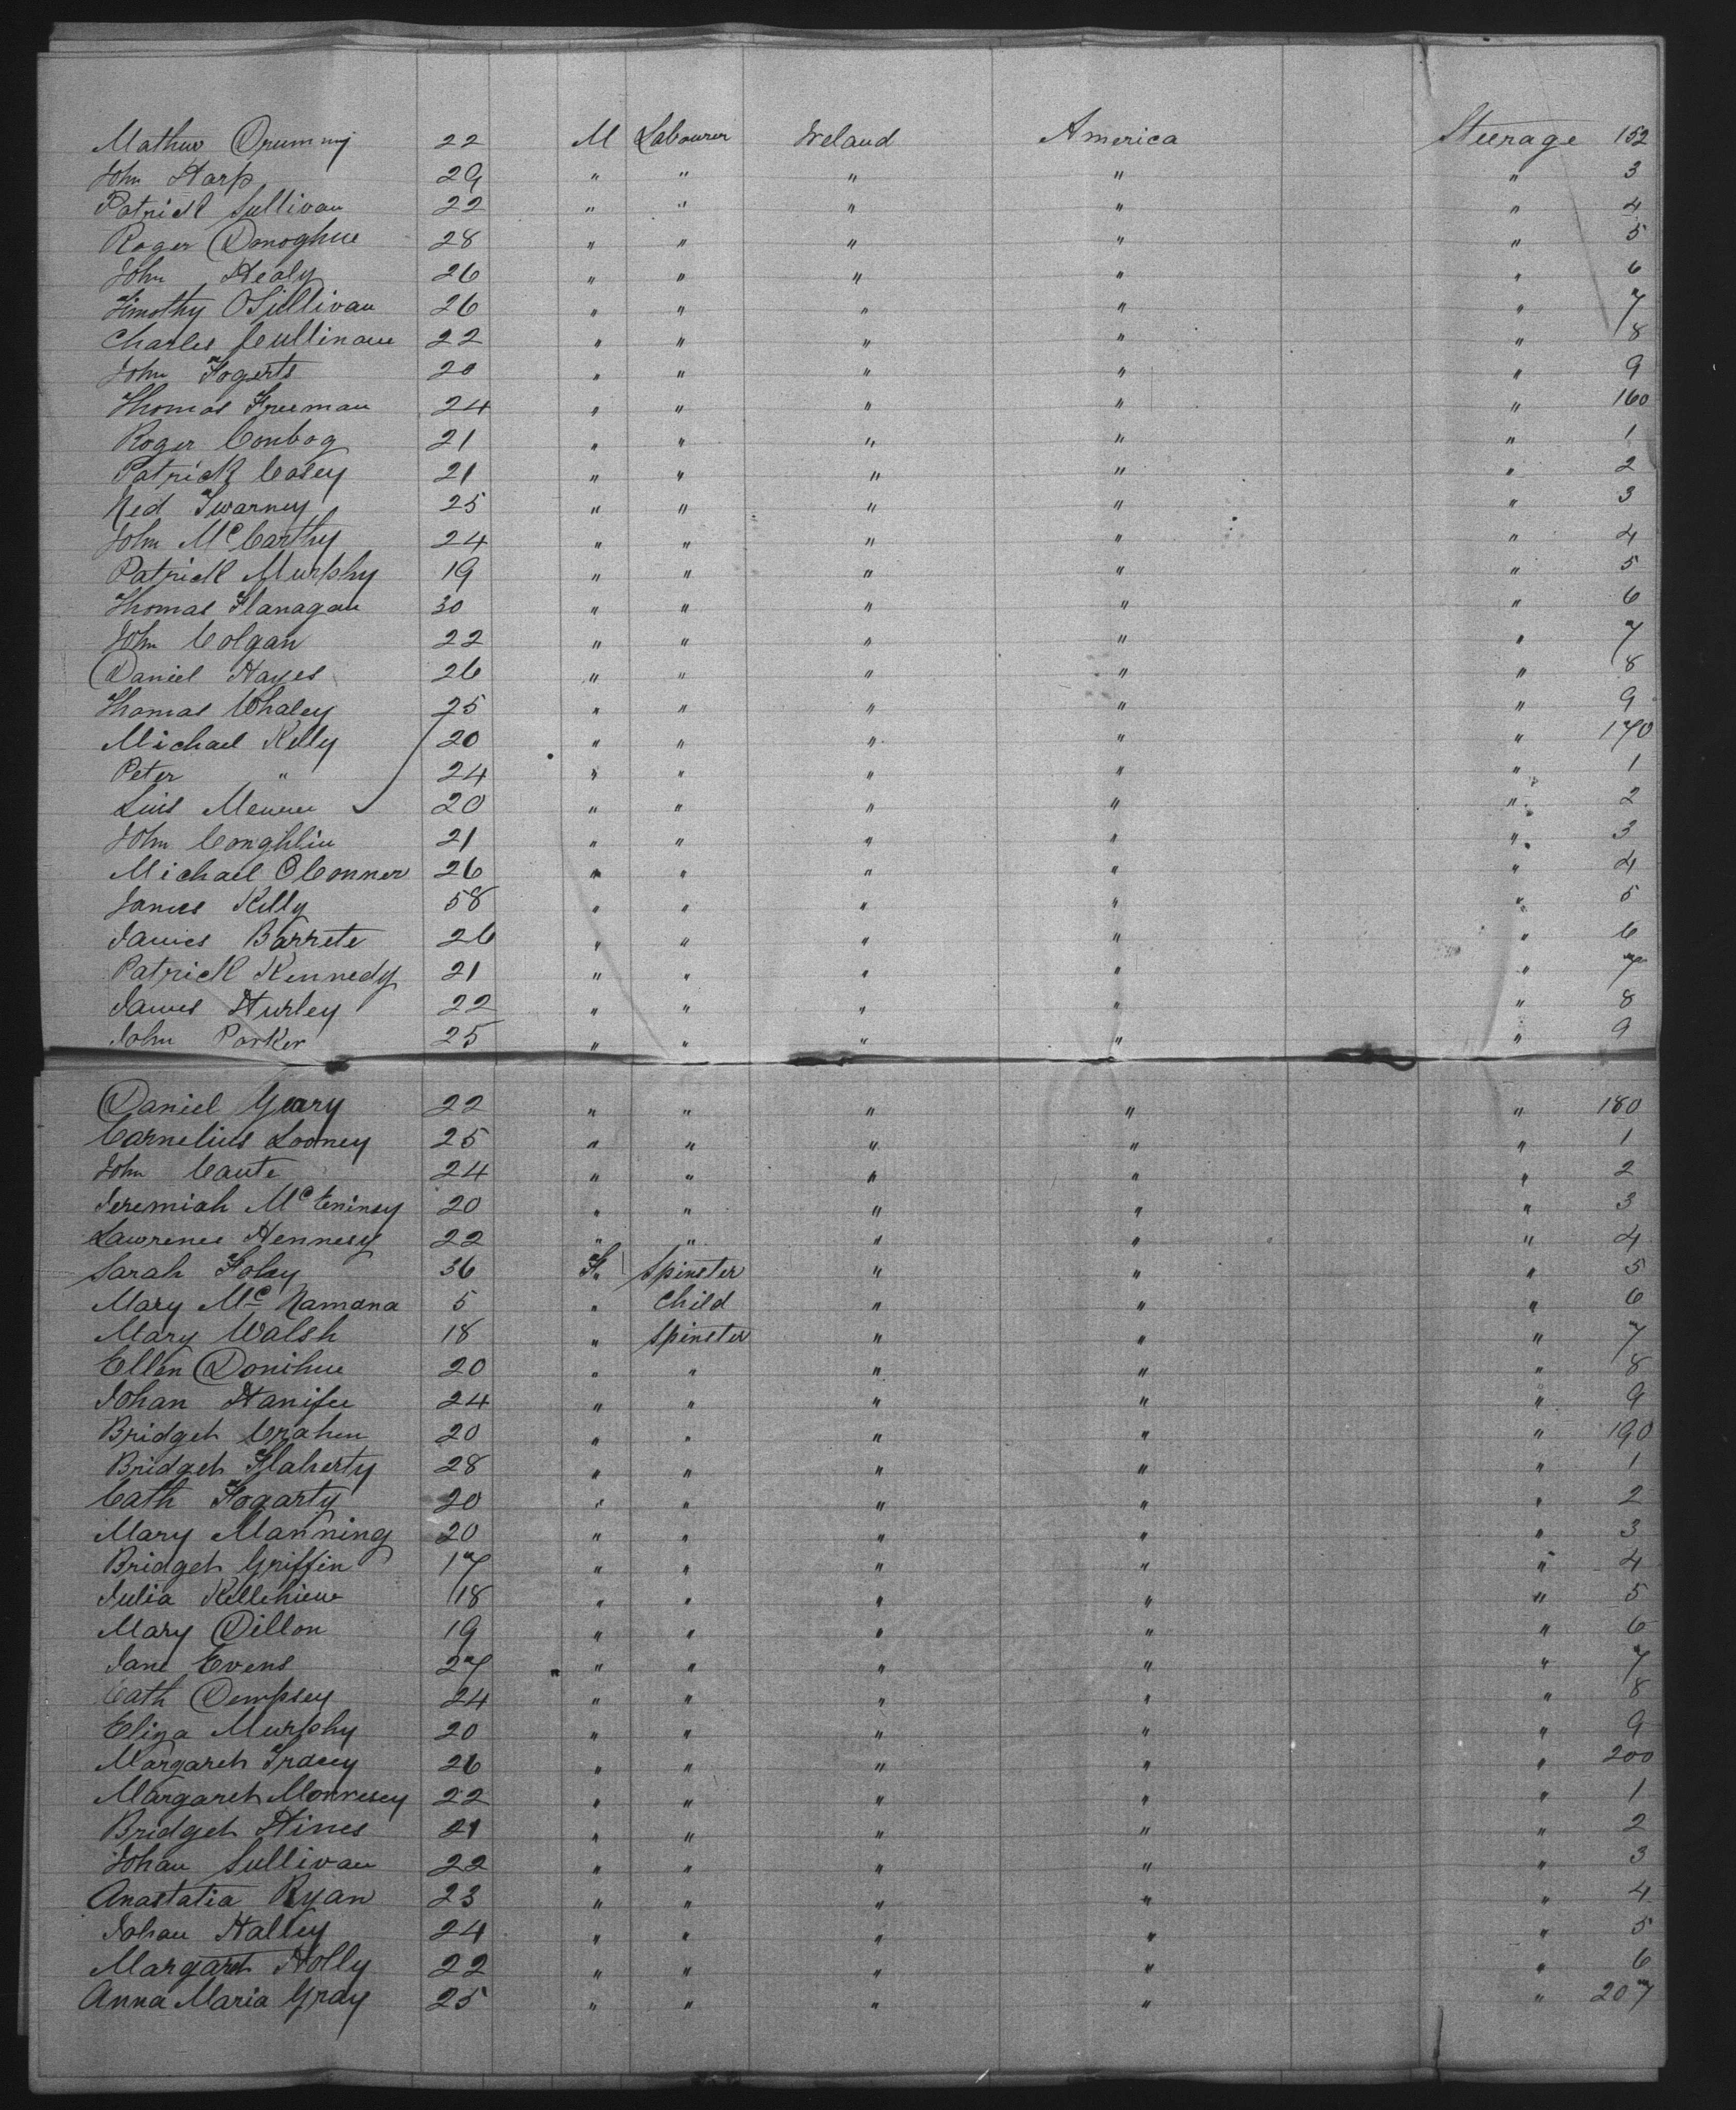 Mathew Drummy 22 M Labourer Ireland America Steerage 152
John Harp 29 " " " " " 3
Patrick Sullivan 22 " " " " " 4
Roger Donoghue 28 " " " " " 5
John Healy 26 " " " " " 6
Timothy OSullivan 26 " " " " " 7
Charles Cullinane 22 " " " " " 8
John Fogerts 20 " " " " " 9
Thomas Freeman 24 " " " " " 160
Roger Conboy 21 " " " " " 1
Patrick Casey 21 " " " " " 2
Ned Twarney 25 " " " " " 3
John McCarthy 24 " " " " " 4
Patrick Murphy 19 " " " " " 5
Thomas Flanagan 30 " " " " " 6
John Colgan 22 " " " " " 7
Daniel Hayes 26 " " " " " 8
Thomas Whaley 25 " " " " " 9
Michael Kelly 20 " " " " " 170
Peter " 24 " " " " " 1
Luis 20 " " " " " 2
John Coughlin 21 " " " " " 3
Michael OConner 26 " " " " " 4
James Kelly 58 " " " " " 5
James Barrete 26 " " " " " 6
Patrick Kennedy 21 " " " " " 7
James Hurley 22 " " " " " 8
John Parker 25 " " " " " 9
Daniel Geary 22 " " " " " 180
Cornelius Looney 25 " " " " " 1
John Caute 24 " " " " " 2
Jeremiah McEniney 20 " " " " " 3
Lawrence Hennesy 22 " " " " " 4
Sarah Foley 36 F. Spinster " " " 5
Mary Mc Namana 5 " Child " " " 6
Mary Walsh 18 " Spinster " " " 7
Ellen Donihue 20 " " " " " 8
Johan Hanifee 24 " " " " " 9
Bridget Crahen 20 " " " " " 190
Bridget Flaherty 28 " " " " " 1
Cath Fogarty 20 " " " " " 2
Mary Manning 20 " " " " " 3
Bridget Griffin 17 " " " " " 4
Julia Kellehieue 18 " " " " " 5
Mary Dillon 19 " " " " " 6
Jane Evens 27 " " " " " 7
Cath Dempsey 24 " " " " " 8
Eliza Murphy 20 " " " " " 9
Margaret Tracey 26 " " " " " 200
Margaret Morresey 22 " " " " " 1
Bridget Hines 21 " " " " " 2
Johan Sullivan 22 " " " " " 3
Anastatia Ryan 23 " " " " " 4
Johan Halley 24 " " " " " 5
Margaret Holly 22 " " " " " 6
Anna Maria Gray 25 " " " " " 207